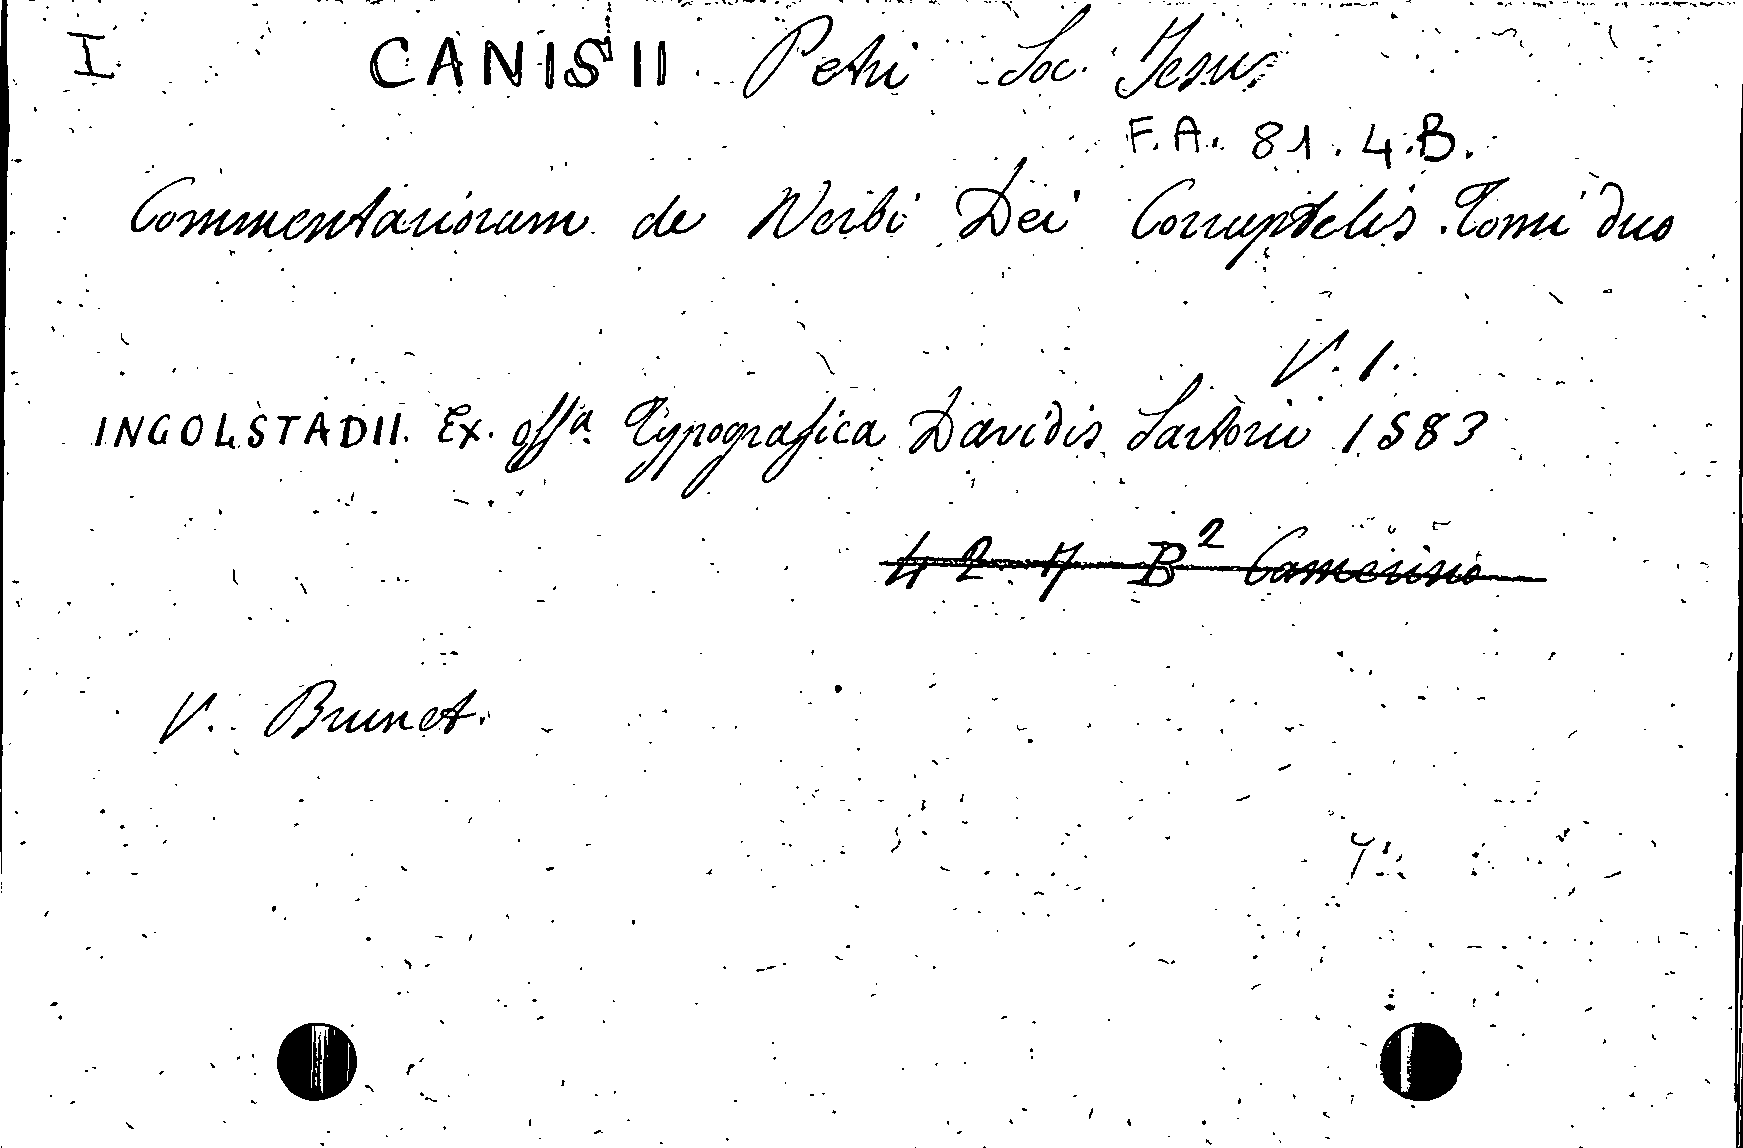 I. CANISII Petri Soc. Jesu
F.A. 81.4.B.
Commentariorum de Verbi Dei Corruptelis Tomi duo
V. 1.
INGOLSTADII. Ex. offa. Typografica Davidis Sartorii 1583
42.7 B2 Camerino
V. Brunet.